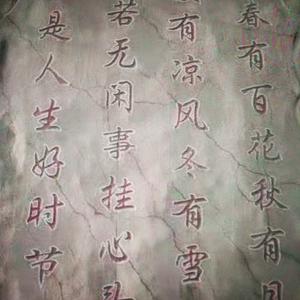 春有百花秋有月
有凉风冬有雪
若无闲事挂心头
是人生好时节